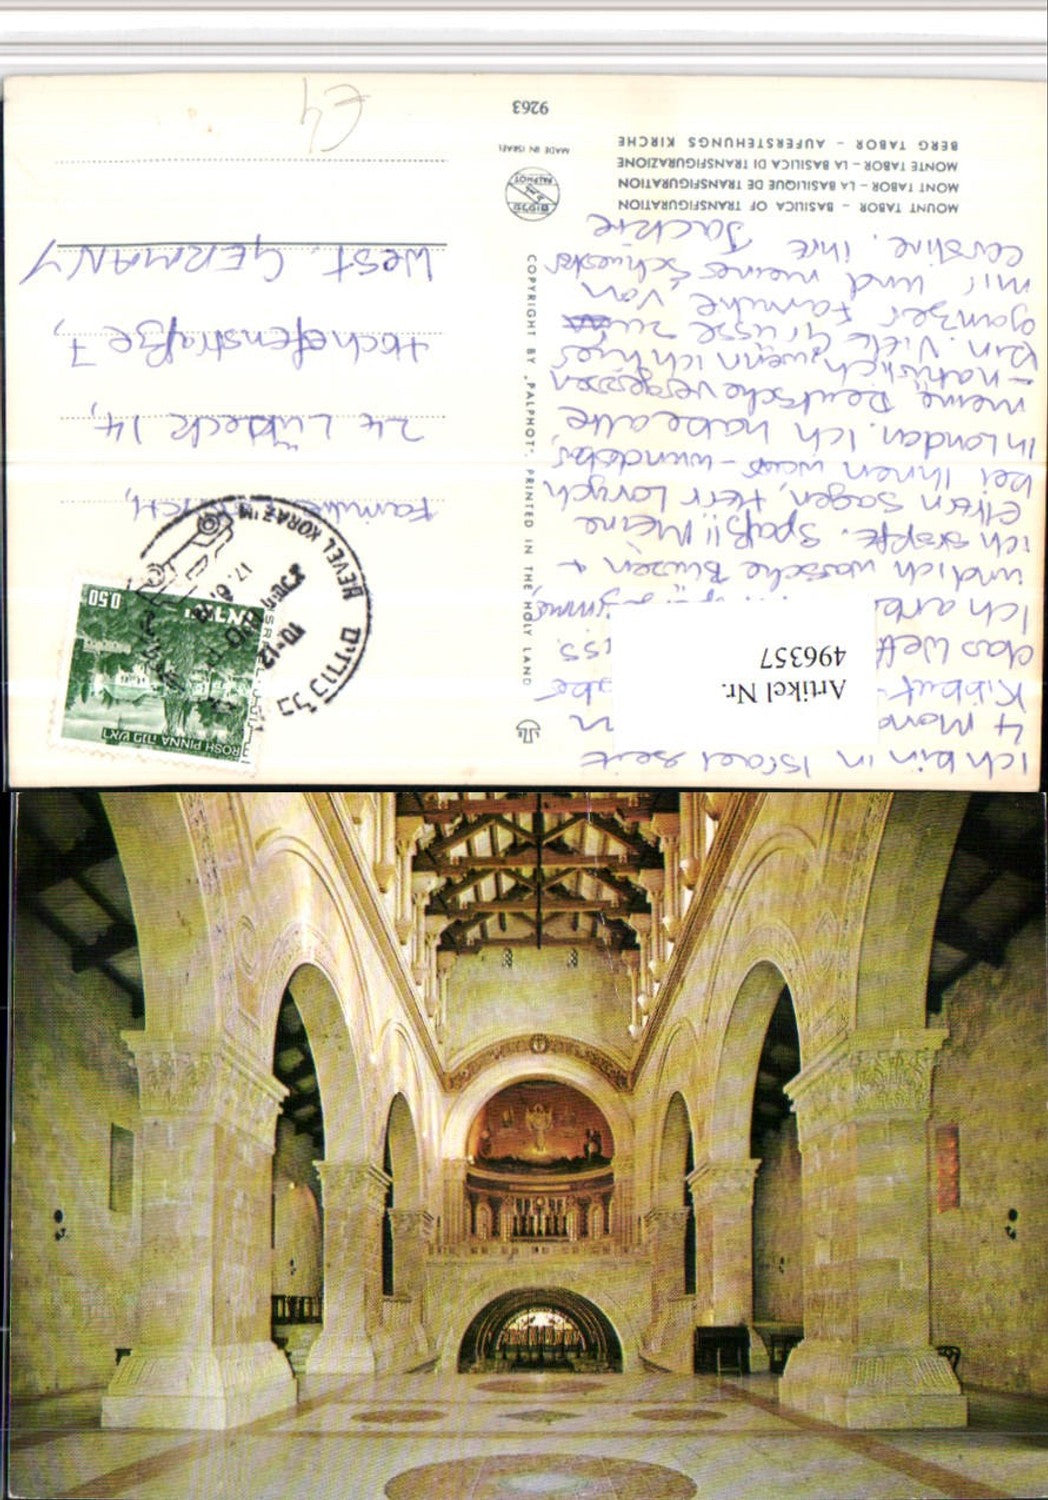 MOUNT TABOR – BASILICA OF TRANSFIGURATION
MONT TABOR – LA BASILIQUE DE TRANSFIGURATION
MONTE TABOR – LA BASILICA DI TRANSFIGURAZIONE
BERG TABOR – AUFERSTEHUNGS KIRCHE
9263
MADE IN ISRAEL
PALPHOT
COPYRIGHT BY „PALPHOT", PRINTED IN THE HOLY LAND
Ich bin in Israel seit
4
Kibbut
das Wett
Ich
und ich wasche Blusen +
ich stopfe. Spaß!! Meine
Eltern sagen, Herr Lorych
bei Ihnen was - wunderbar,
In London. Ich habe alle
meine Deutsche vergessen
- natürlich, wenn ich hier
bin. Viele Grüsse zu
ganzer Familie von
mir und meines Schwester
Caroline. Ihre Jackie
Artikel Nr.
496357
ROSH PINNA
ISRAEL
0.50
HEVEL KORAZIM
17. 8.
10-12
Familie
24 Lübeck 14,
Hochofenstraße 7,
West. GERMANY
€4